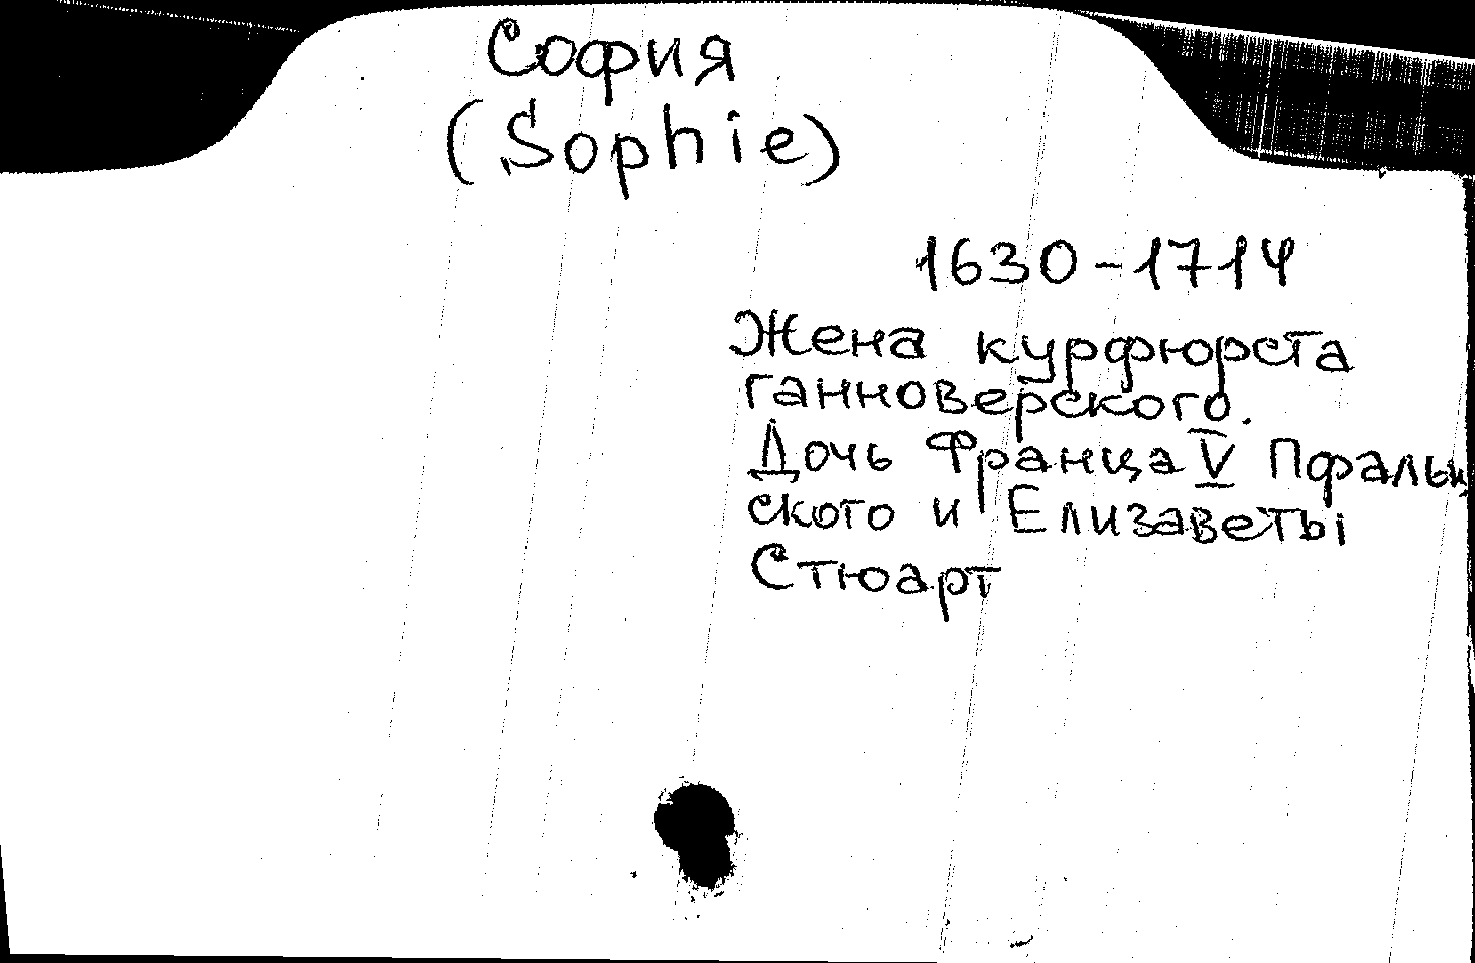 София
(Sophie)
1630-1714
Жена курфюрста
ганноверского.
Дочь Франца V Пфальц
ского и Елизаветы
Стюарт